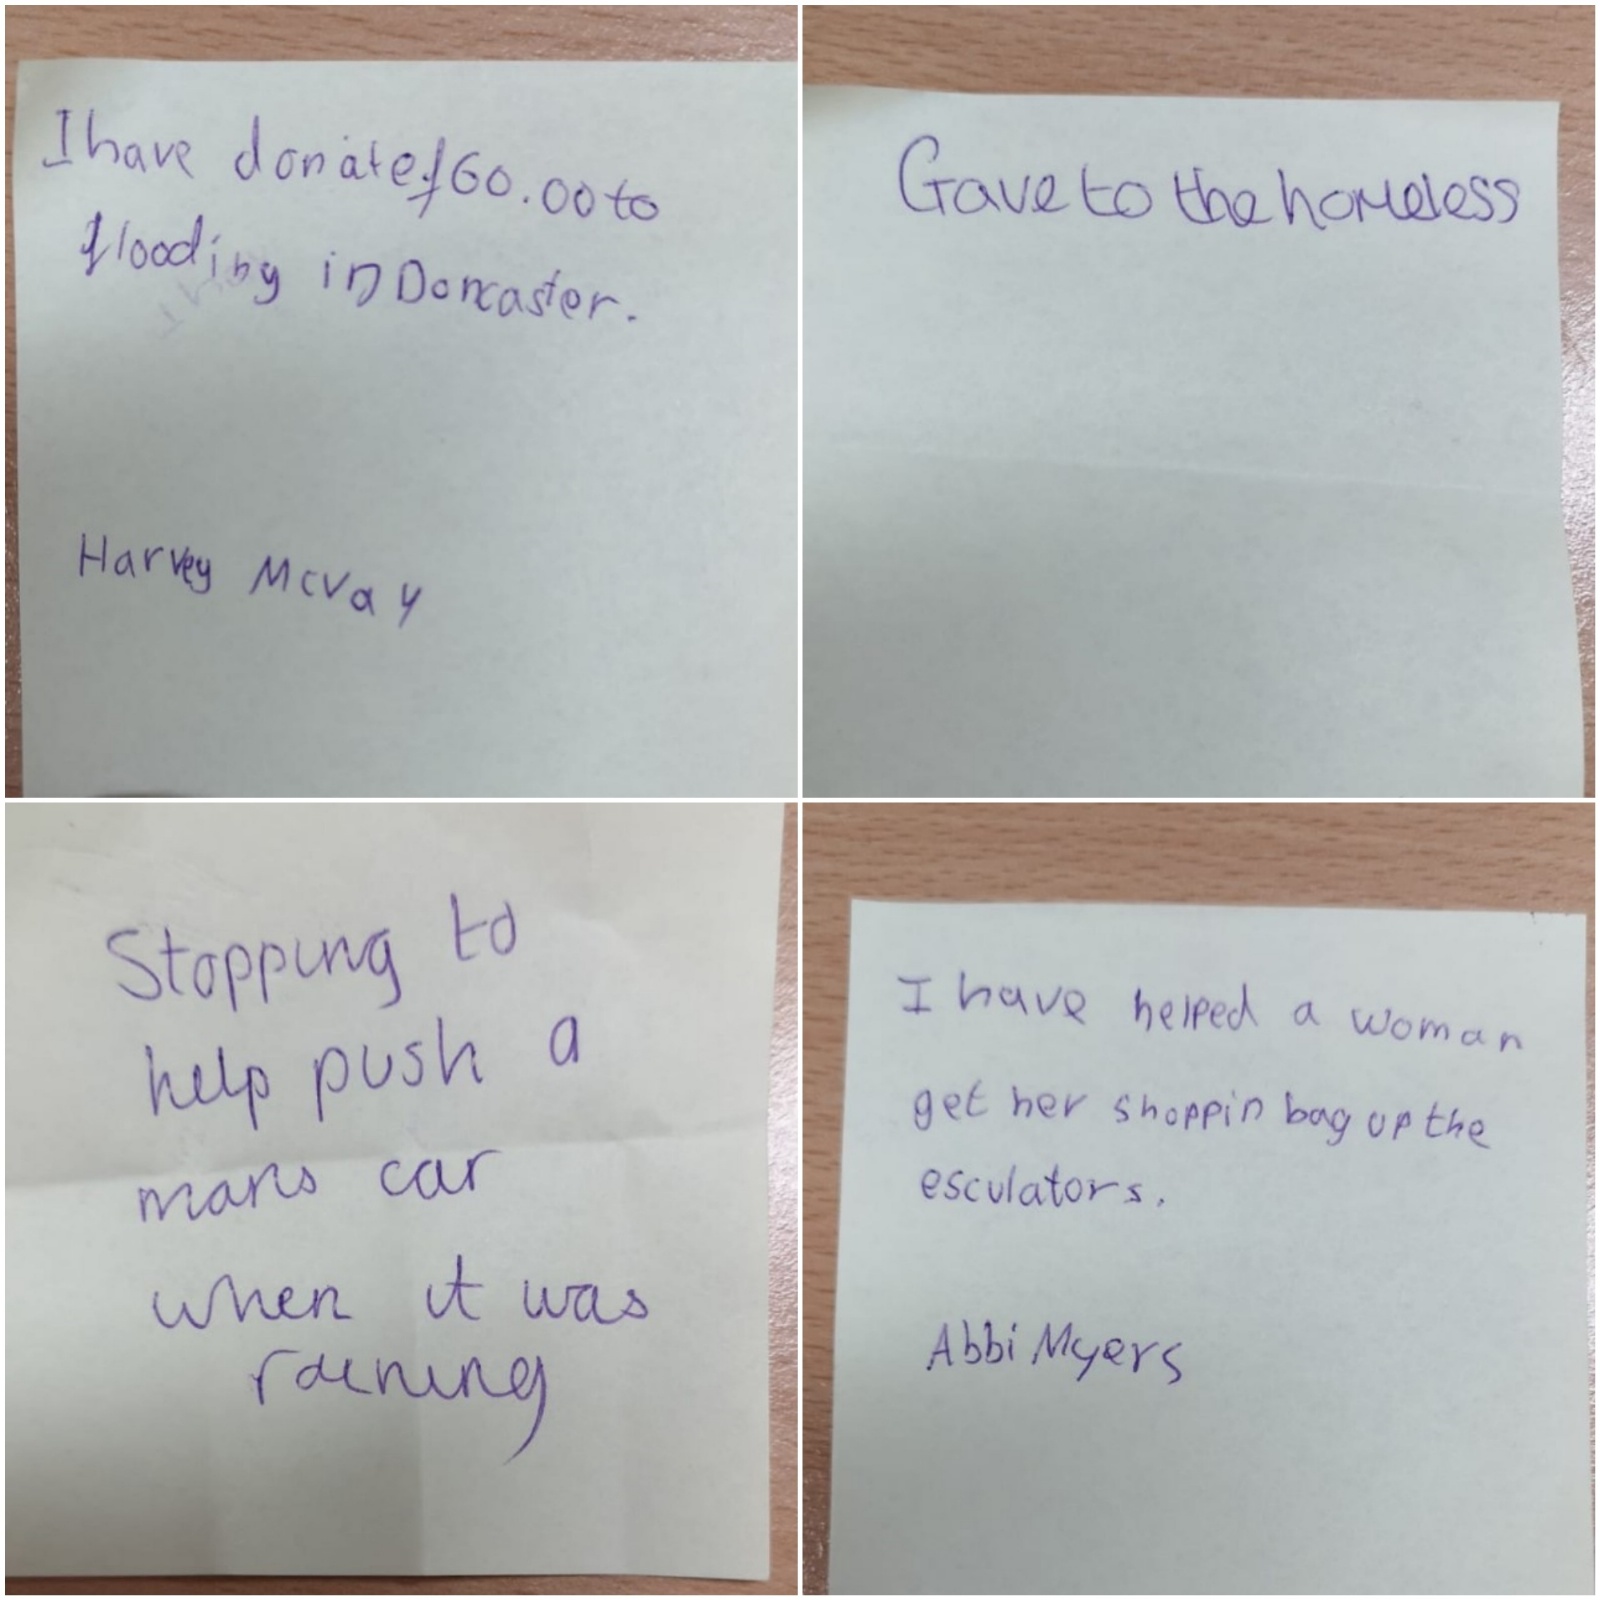 I have donate £60.00 to
flooding in Doncaster.
Harvey McVay
Gave to the homeless
Stopping to
help push a
mans car
when it was
raening
I have helped a woman
get her shoppin bag up the
esculators.
Abbi Myers